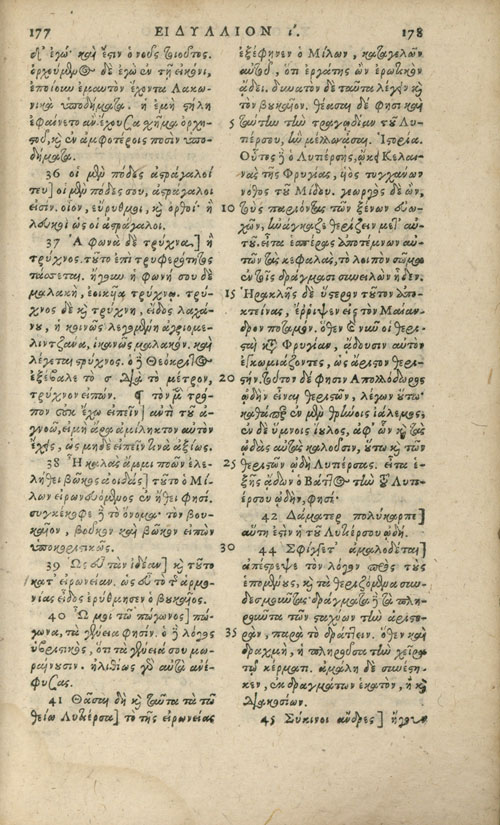 177 ΕΙΔΥΛΛΙΟΝ ί. 178
δι' ἐγώ· καὶ ἔστιν ὁ νοῦς τοιοῦτος.
ὀρχούμενος δὲ ἐγὼ ἐν τῇ εἰκόνι,
ἐποίουν ἐμαυτὸν ἔχοντα Λακω-
νικὰ ὑποδήματα. ἡ ἐμὴ στήλη
ἐφαίνετο ἂν ἔχουσα σχῆμα ὀρχη-
στοῦ, κ ἐν ἀμφοτέροις ποσὶν ὑπο-
δήματα.
36 οἱ μὲν πόδες ἀστράγαλοί
τευ] οἱ μὲν πόδες σου, ἀστράγαλοι
εἰσιν. οἷον, εὔρυθμοι, κ ὀρθοί· ἢ
λευκοὶ ὡς οἱ ἀστράγαλοι.
37 Ἁ φωνὰ δὲ τρύχνα] ἢ
τρύχνος. τῦτο ἐπὶ τρυφερότητος
τάσσεται. ἤγουν ἡ φωνή σου δὲ
μαλακὴ, ἐοικυῖα τρύχνῳ. τρύ-
χνος δὲ κ τρύχνη, εἶδος λαχά-
νου, ἡ κοινῶς λεγομένη ἀγριομε-
λιντζάνα, ἱκανῶς μαλακόν. καὶ
λέγεται στρύχνος. ὁ δὲ Θεόκριτος
ἐξέβαλε τὸ σ διὰ τὸ μέτρον,
τρύχνον εἰπών. ¶ τὸν μὲν τρό-
πον οὐκ ἔχω εἰπεῖν] αὐτὶ τῦ ἀ-
γνοῶ, εἰμὴ ἄρα ἀμίληκτον αὐτὸν
ἔχεις, ὡς μηδὲ εἰπεῖν τινὰ ἀξίως.
38 Ἦ καλὰς ἄμμι ποῶν ἐλε-
λήθει βῶκος ἀοιδάς] τῦτο ὁ Μί-
λων εἰρωνευόμενος ἐν ἤθει φησί.
συγκέκοφε δὲ τὸ ὄνομα· τὸν βου-
καῖον, βοῦκον καὶ βῶκον εἰπὼν
ὑποκοριστικῶς.
39 Ὡς εὖ τὰν ἰδέαν] κ τῦτο
κατ' εἰρωνείαν. ὡς εὖ τὸ τ ἁρμο-
νίας εἶδος ἐρύθμησεν ὁ βουκαῖος.
40 Ὤ μοι τῶ πώγωνος] πώ-
γωνα, τὰ γένεια φησίν. ὁ δὲ λόγος
ὑβριστικὸς, ὅτι τὰ γένειά σου μω-
ραίνουσιν. ἠλιθίως γὸ αὐτὰ ἀνέ-
φυσας.
41 Θᾶσαι δὴ κ ταῦτα τὰ τῶ
θείω Λυτιέρσα] τὸ τῆς εἰρωνείας
ἐξέφηνεν ὁ Μίλων, καταγελῶν
αὐτοῦ, ὅτι ἐργάτης ὢν ἐρωτικὸν
ᾄδει. δυνατὸν δὲ ταῦτα λέγειν κ
τὸν βουκαῖον. θέασαι δέ φησι καὶ
5 ταύτην τὴν τραγῳδίαν τῦ Λυ-
τιέρσου, ἣν μέλπω ᾆσαι. Ἱστορία.
Οὗτος δὲ ὁ Λυτιέρσης, ᾤκει Κελαι-
νὰς τῆς Φρυγίας, υἱὸς τυγχάνων
νόθος τῦ Μίδου. γεωργὸς δὲ ὢν,
10 τοὺς παριόντας τῶν ξένων εὐω-
χῶν, ἠνάγκαζε θερίζειν μετ' αὐ-
τῦ. εἶτα ἑσπέρας ἀποτέμνων αὐ-
τῶν τὰς κεφαλὰς, τὸ λοιπὸν σῶμα
ἐν τοῖς δράγμασι συνειλῶν ᾖδεν.
15 Ἡρακλῆς δὲ ὕστερον τῦτον ἀπο-
κτείνας, ἔρριψεν εἰς τὸν Μαίαν-
δρον ποταμόν. ὅθεν ἔτι νῦ οἱ θερι-
σταὶ κτ Φρυγίαν, ᾄδουσιν αὐτὸν
ἐγκωμιάζοντες, ὡς ἄριστον θερι-
20 στήν. τοῦτον δέ φησιν Ἀπολλόδωρος
ᾠδὴν εἶναι θεριστῶν, λέγων ὕτω·
καθάπερ ἐν μὲν θρήνοις ἰάλεμος,
ἐν δὲ ὕμνοις ἴυλος, ἀφ' ὧν κ τὰς
ᾠδὰς αὐτὰς καλοῦσιν, ὕτω κ τῶν
25 θεριστῶν ᾠδὴ Λυτιέρσας. εἶτα ἑ-
ξῆς ᾄδων ὁ Βάττος τὴν τοῦ Λυτι-
έρσου ᾠδὴν, φησί·
42 Δάματερ πολύκαρπε]
αὕτη ἐστὶν ἡ τῦ Λυτιέρσου ᾠδή.
30 44 Σφίγγετ' ἀμαλοδέται]
ἀπέστρεψε τὸν λόγον πρὸς τοὺς
ἑπομένους, κ τὰ θεριζόμενα συν-
δεσμοῦντας δράγματα δὲ τὰ πλη-
ροῦντα τῶν σταχύων τὴν ἀρισε-
35 ρὰν, παρὰ τὸ δράττειν. ὅθεν καὶ
δραχμὴ, ἡ πληροῦσα τὴν χεῖρα
τῷ κέρματι. ἀμάλη δὲ συνέστη-
κεν, ἐκ δραγμάτων ἑκατὸν, ἢ κ
διακοσίων.
45 Σύκινοι ἄνδρες] ἤγουν